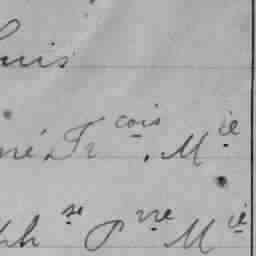 ouis
né Frçois. Mie
ph se Pre Mie